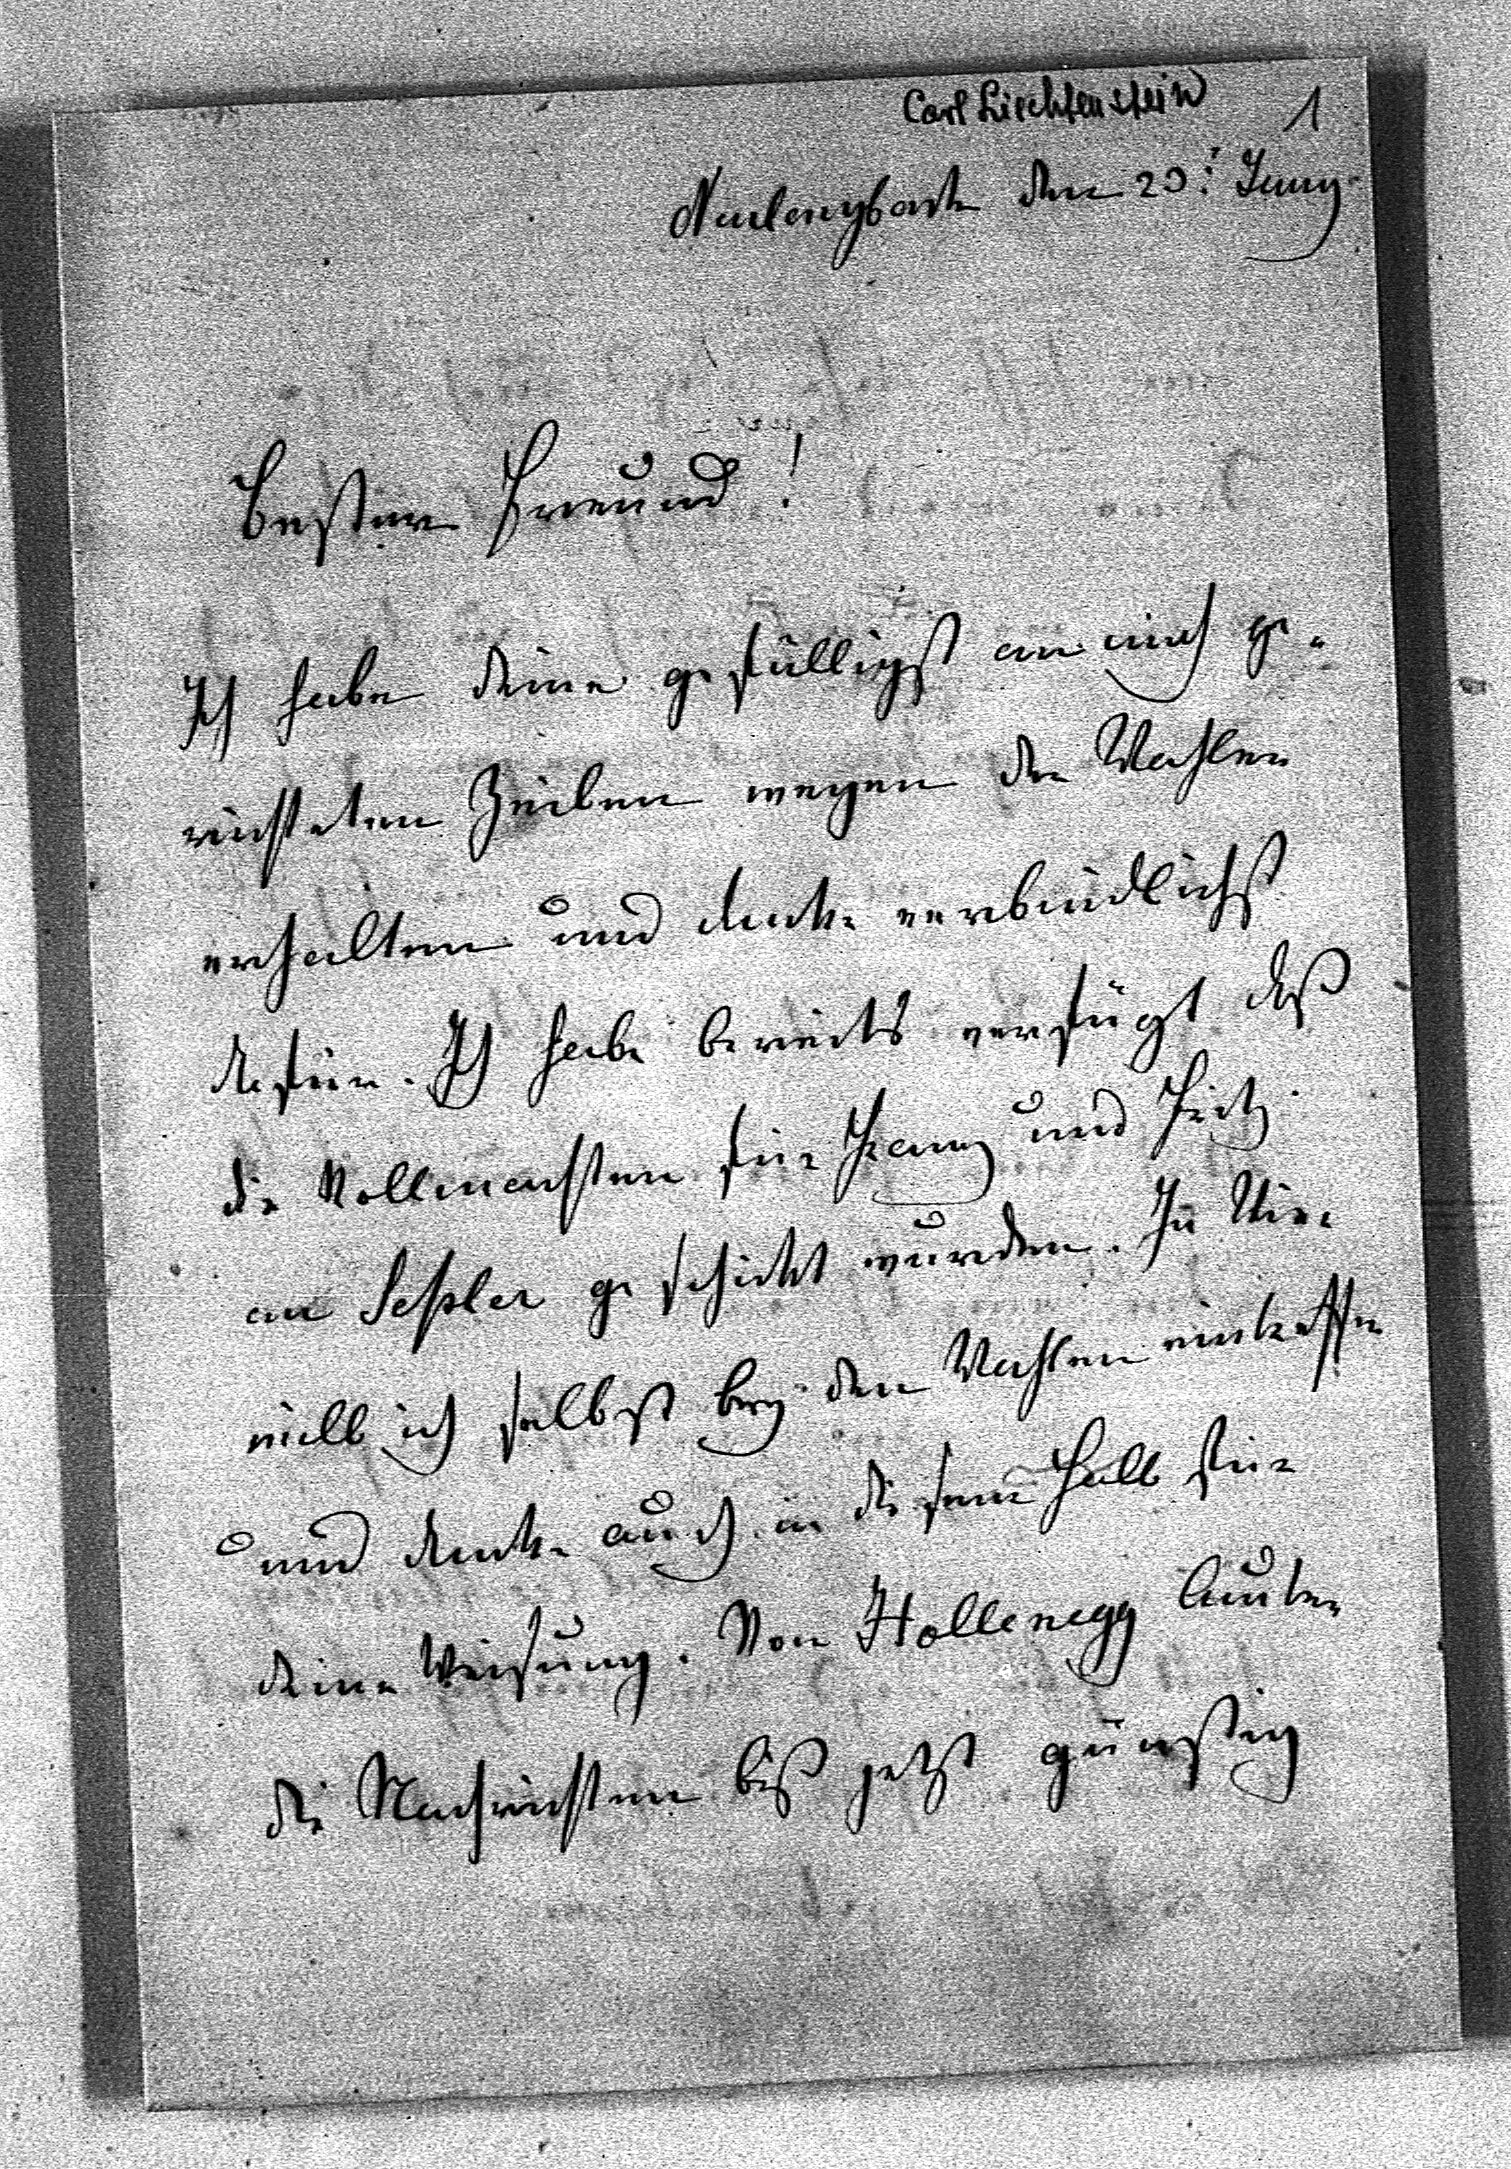 Carl Liechtenstein 1
Neulengbach den 20t Juny
Bester Freund!
Ich habe deine gefälligst an mich ge-
richteten Zeilen wegen den Wahlen
erhalten und danke verbindlichst
dafür. Ich habe bereits verfügt daß
die Vollmachten für Franz und Fritz
an Seßler geschickt wurden. In
will ich selbst bey den Wahlen eintreffen
und danke auch in diesem Falle für
deine Weisung. Von Hollenegg lauten
die Nachrichten biß jetzt günstig